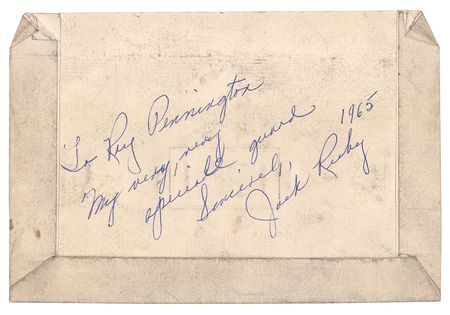 To Ray Pennington
My very, very
special guard
Sincerely, 1965
Jack Ruby